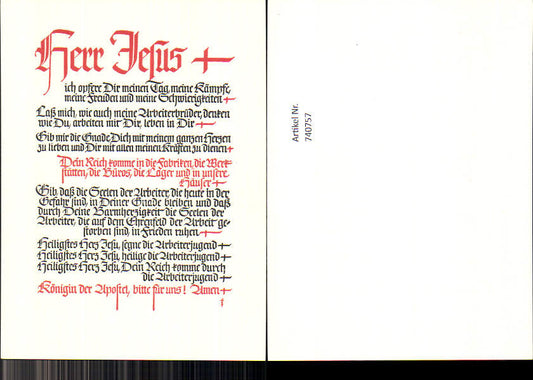 Herr Jesus +
ich opfere Dir meinen Tag, meine Kämpfe,
meine Freuden und meine Schwierigkeiten +
Laß mich, wie auch meine Arbeiterbrüder, denken
wie Du, arbeiten mit Dir, leben in Dir +
Gib mir die Gnade Dich mit meinem ganzen Herzen
zu lieben und Dir mit allen meinen Kräften zu dienen +
Dein Reich komme in die Fabriken, die Werk=
stätten, die Büros, die Lager und in unsere
Häuser +
Gib, daß die Seelen der Arbeiter, die heute in der
Gefahr sind, in Deiner Gnade bleiben und daß
durch Deine Barmherzigkeit die Seelen der
Arbeiter, die auf dem Ehrenfeld der Arbeit ge=
storben sind, in Frieden ruhen +
Heiligstes Herz Jesu, segne die Arbeiterjugend +
Heiligstes Herz Jesu, heilige die Arbeiterjugend +
Heiligstes Herz Jesu, Dein Reich komme durch
die Arbeiterjugend +
Königin der Apostel, bitte für uns! Amen +
Artikel Nr.
740757